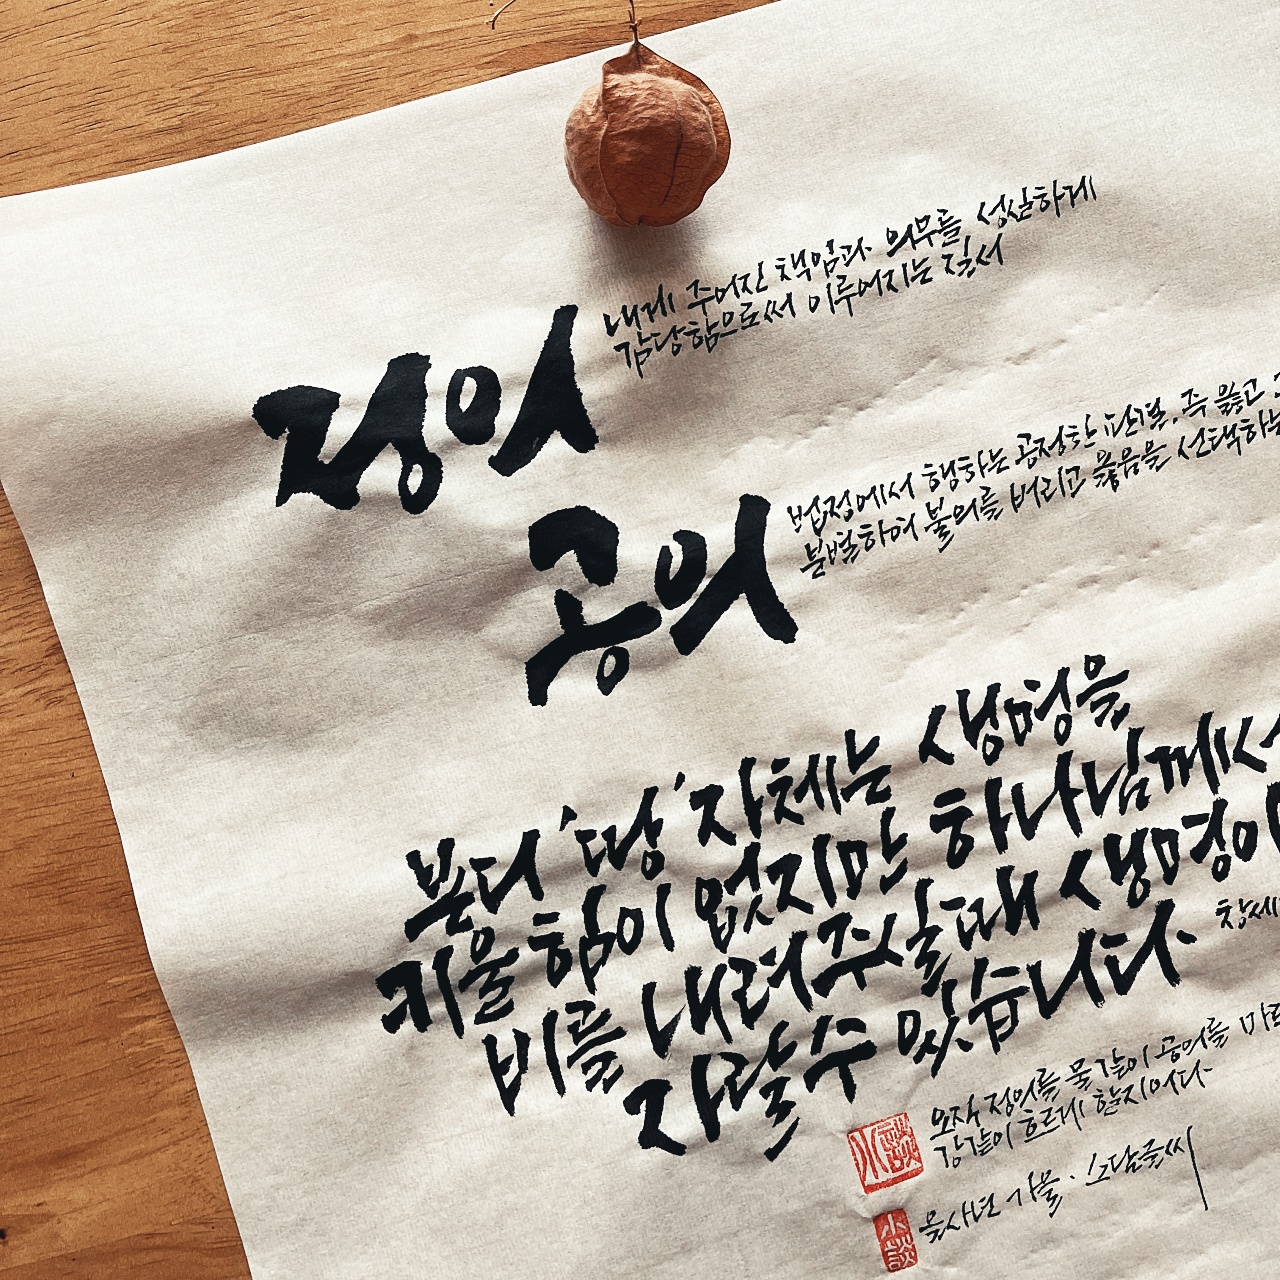 정의
내게 주어진 책임과 의무를 성실하게
감당함으로써 이루어지는 질서
공의
법정에서 행하는 공정한 판결, 즉 옳고
분별하여 불의를 버리고 옳음을 선택하는
본디 '땅' 자체는 생명을
키울 힘이 없지만 하나님께서
비를 내려주실 때 생명이
자랄 수 있습니다 창세
오직 정의를 물같이 공의를 마르
강같이 흐르게 할지어다
을사년 가을 · 소담글씨
小談
小談